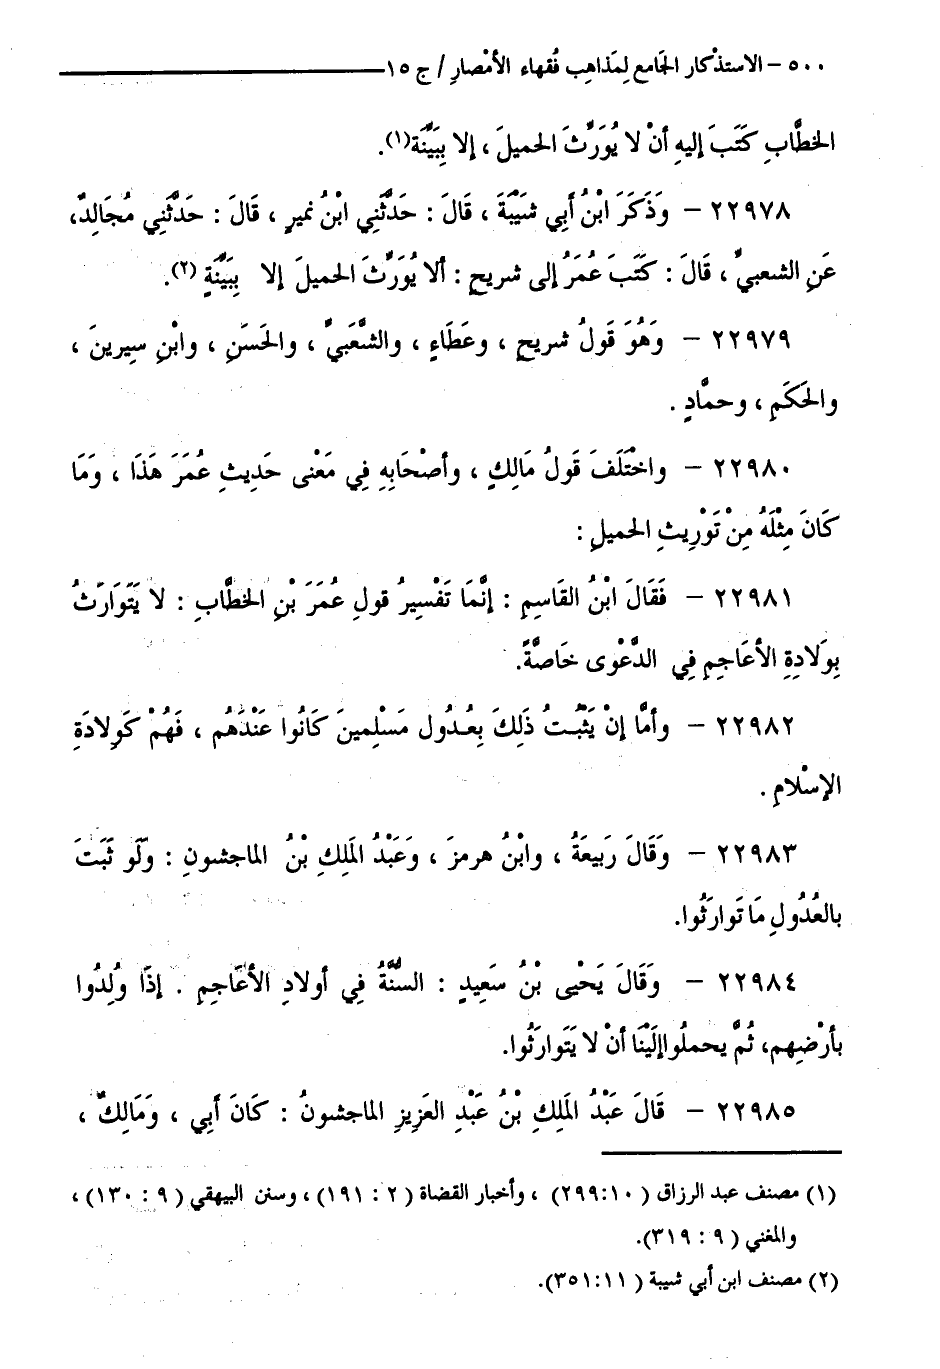 ٥٠٠ – الاستذْكار الجَامع لِمَذاهِب فُقهاء الأمْصارِ / ج ١٥
الخطَّابِ كَتَبَ إليهِ أنْ لا يُوَرِّثَ الحميلَ ، إلا بِبَيِّنَة(١).
٢٢٩٧٨ – وَذَكَرَ ابْنُ أبِي شَيْبَةَ ، قَالَ : حَدَّثَنِي ابْنُ نميرٍ ، قَالَ : حَدَّثَنِي مُجَالِدٌ،
عَنِ الشعبيِّ ، قَالَ : كَتَبَ عُمَرُ إلى شريحٍ : ألا يُوَرِّثَ الحميلَ إلا بِبَيِّنَةٍ (٢).
٢٢٩٧٩ – وَهُوَ قَولُ شريحٍ ، وعَطَاءٍ ، والشَّعَبيِّ ، والحَسَنِ ، وابْنِ سِيرينَ ،
والحَكَمِ ، وحمَّادٍ .
٢٢٩٨٠ – واخْتَلَفَ قَولُ مَالِكٍ ، وأصْحَابِهِ فِي مَعْنى حَدِيثِ عُمَرَ هَذَا ، وَمَا
كَانَ مِثْلَهُ مِنْ تَوْرِيثِ الحميلِ :
٢٢٩٨١ – فَقَالَ ابْنُ القَاسِمِ : إنَّمَا تَفْسِيرُ قولِ عُمَرَ بْنِ الخطَّابِ : لا يَتَوَارَثُ
بِوَلادِةِ الأعَاجِمِ فِي الدَّعْوى خَاصَّةً.
٢٢٩٨٢ – وأمَّا إنْ يَثْبُتُ ذَلِكَ بِعُدُول مَسْلِمينَ كَانُوا عَنْدَهُم ، فَهُمْ كَوِلادَةِ
الإسْلامِ .
٢٢٩٨٣ – وَقَالَ رَبِيعَةُ ، وابْنُ هرمزَ ، وَعَبْدُ المَلِكِ بْنُ الماجشونِ : وَلَو ثَبَتَ
بالعُدُولِ مَا تَوارَثُوا.
٢٢٩٨٤ – وَقَالَ يَحْيى بْنُ سَعِيدٍ : السُّنَّةُ فِي أولادِ الأعَاجِمِ . إذَا وُلِدُوا
بأرْضِهم، ثُمَّ يحملُوا إلَيْنَا أنْ لا يَتَوارَثُوا.
٢٢٩٨٥ – قَالَ عَبْدُ المَلِكِ بْنُ عَبْدِ العَزِيزِ الماجشونُ : كَانَ أبِي ، وَمَالِكٌ ،
(١) مصنف عبد الرزاق ( ١٠:٢٩٩) ، وأخبار القضاة ( ٢ : ١٩١) ، وسنن البيهقي ( ٩ : ١٣٠) ،
والمغني ( ٩ : ٣١٩).
(٢) مصنف ابن أبي شيبة ( ١١:٣٥١).